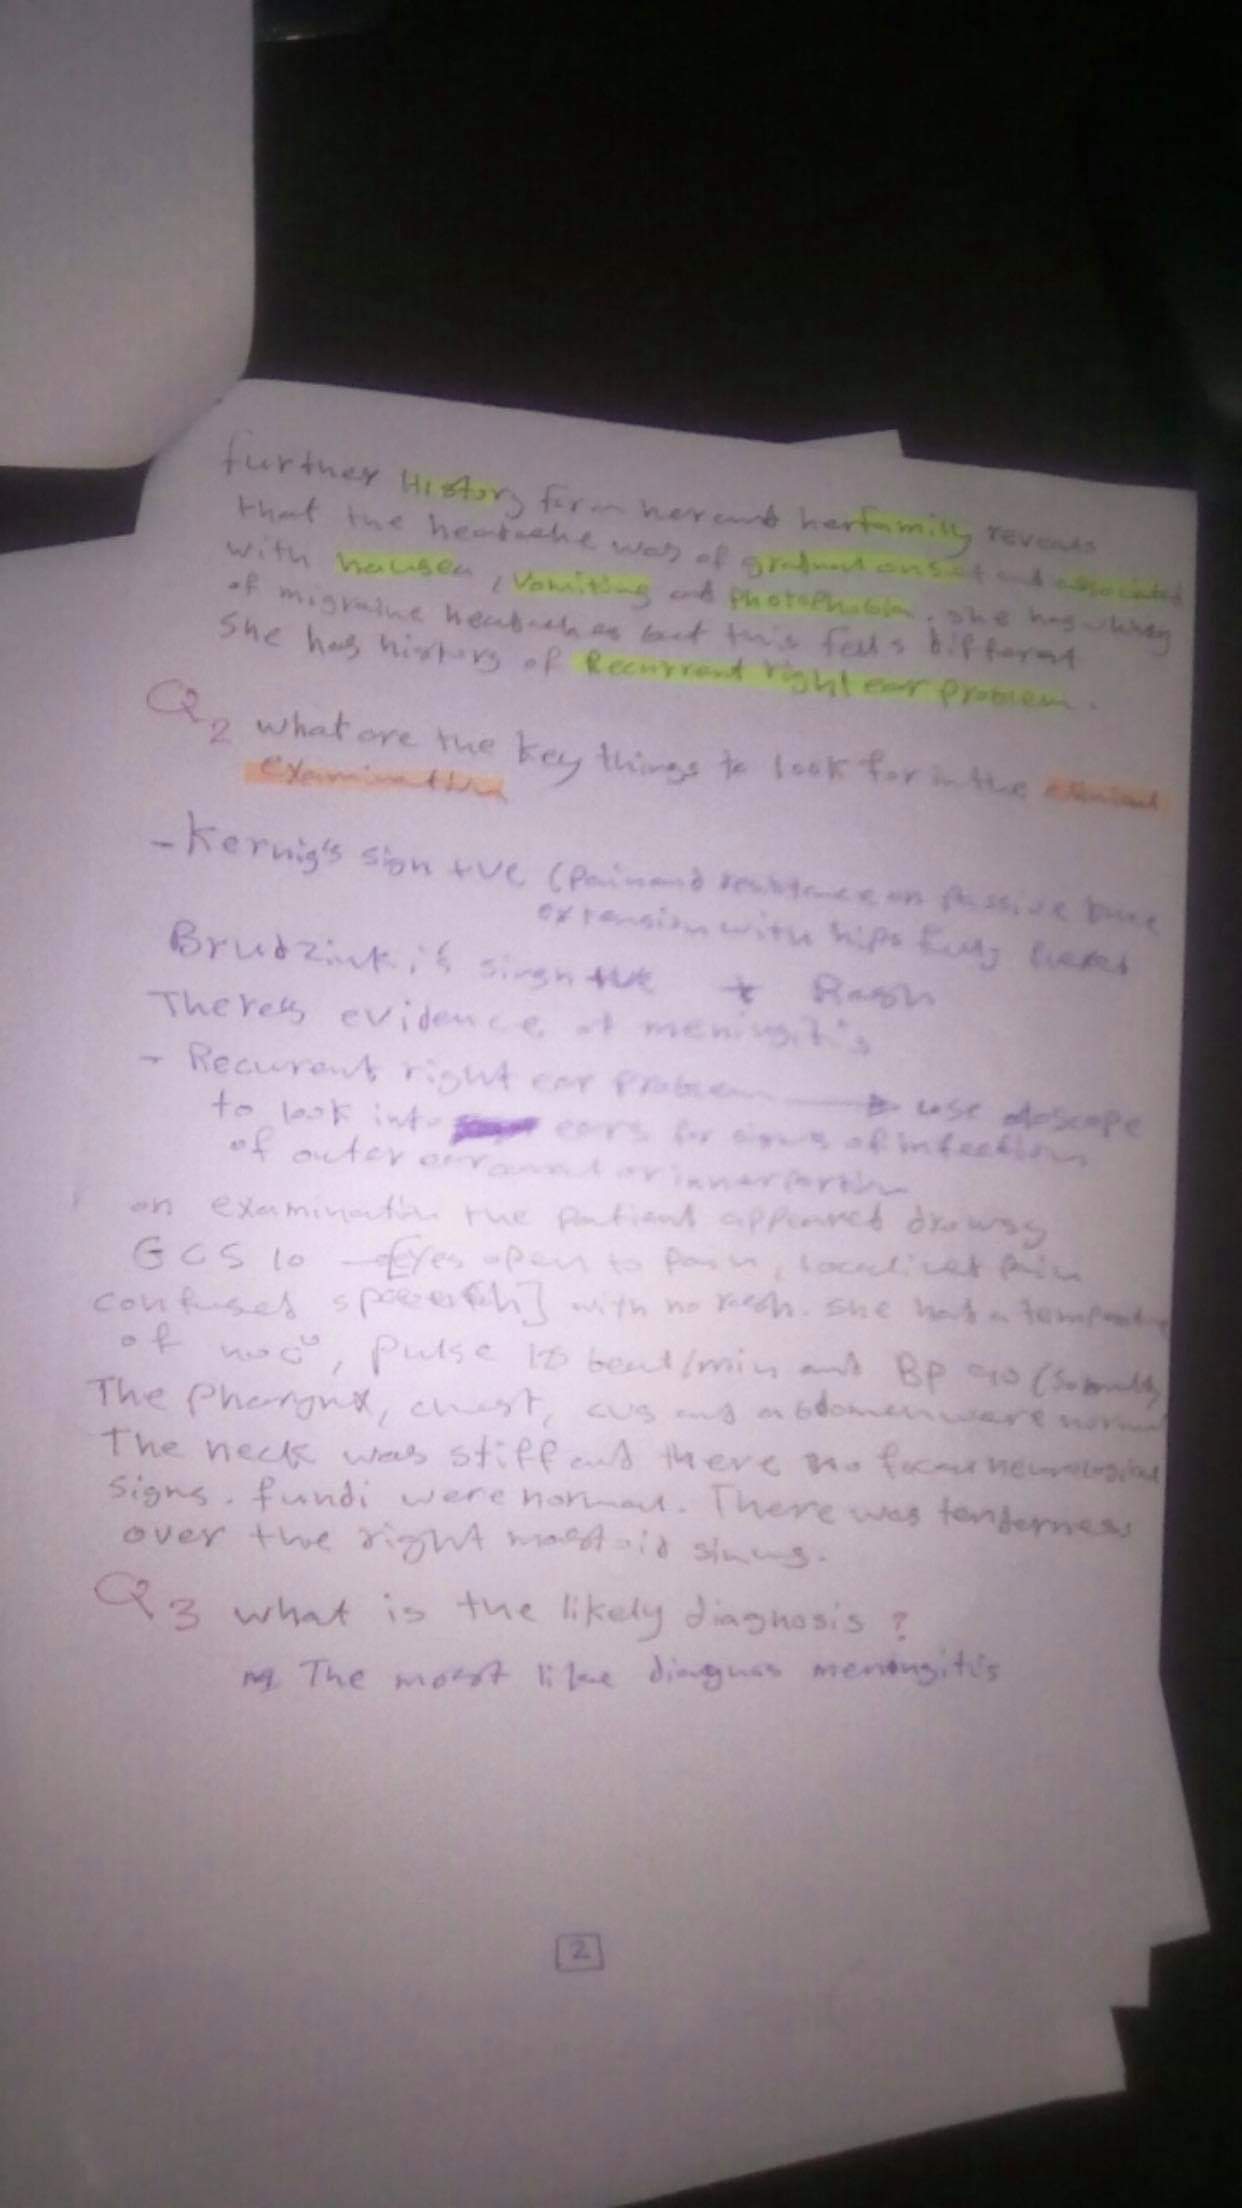 further History form her and her familly reveals
that the headache was of gradual onset and associated
with nausea, Vomiting and photophobia. She has
of migraine headaches but this feels different
She has history of Recurrent right ear problem.
Q2 what are the key things to look for in the clinical
examination
- Kernig's sign +ve (Pain and resistance on passive knee
extension with hips fully flexed
Brudzinki's sign +ve + Rash
There's evidence of meningitis
- Recurent right ear problem use otoscope
to look into ears for signs of infection
of outer ear canal or inner portion
on examination the patient appeared drowsy
GCS 10 [Eyes open to Pain, localised pain
confused speech] with no rash. She had a
of, pulse beat/min and BP
The Pharynx, chest, CVS and abdomen were normal
The neck was stiff and there no focal neurological
signs. fundi were normal. There was tenderness
over the right mastoid sinus.
Q3 what is the likely diagnosis?
The most like diagnosis meningitis
2